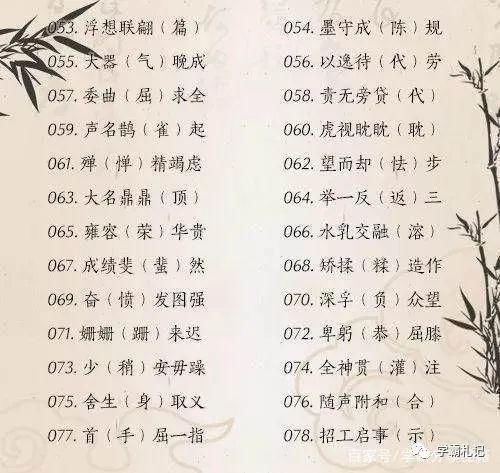 053. 浮想联翩（篇）
054. 墨守成（陈）规
055. 大器（气）晚成
056. 以逸待（代）劳
057. 委曲（屈）求全
058. 责无旁贷（代）
059. 声名鹊（雀）起
060. 虎视眈眈（耽）
061. 殚（惮）精竭虑
062. 望而却（怯）步
063. 大名鼎鼎（顶）
064. 举一反（返）三
065. 雍容（荣）华贵
066. 水乳交融（溶）
067. 成绩斐（蜚）然
068. 矫揉（糅）造作
069. 奋（愤）发图强
070. 深孚（负）众望
071. 姗姗（跚）来迟
072. 卑躬（恭）屈膝
073. 少（稍）安毋躁
074. 全神贯（灌）注
075. 舍生（身）取义
076. 随声附和（合）
077. 首（手）屈一指
078. 招工启事（示）
学霸札记